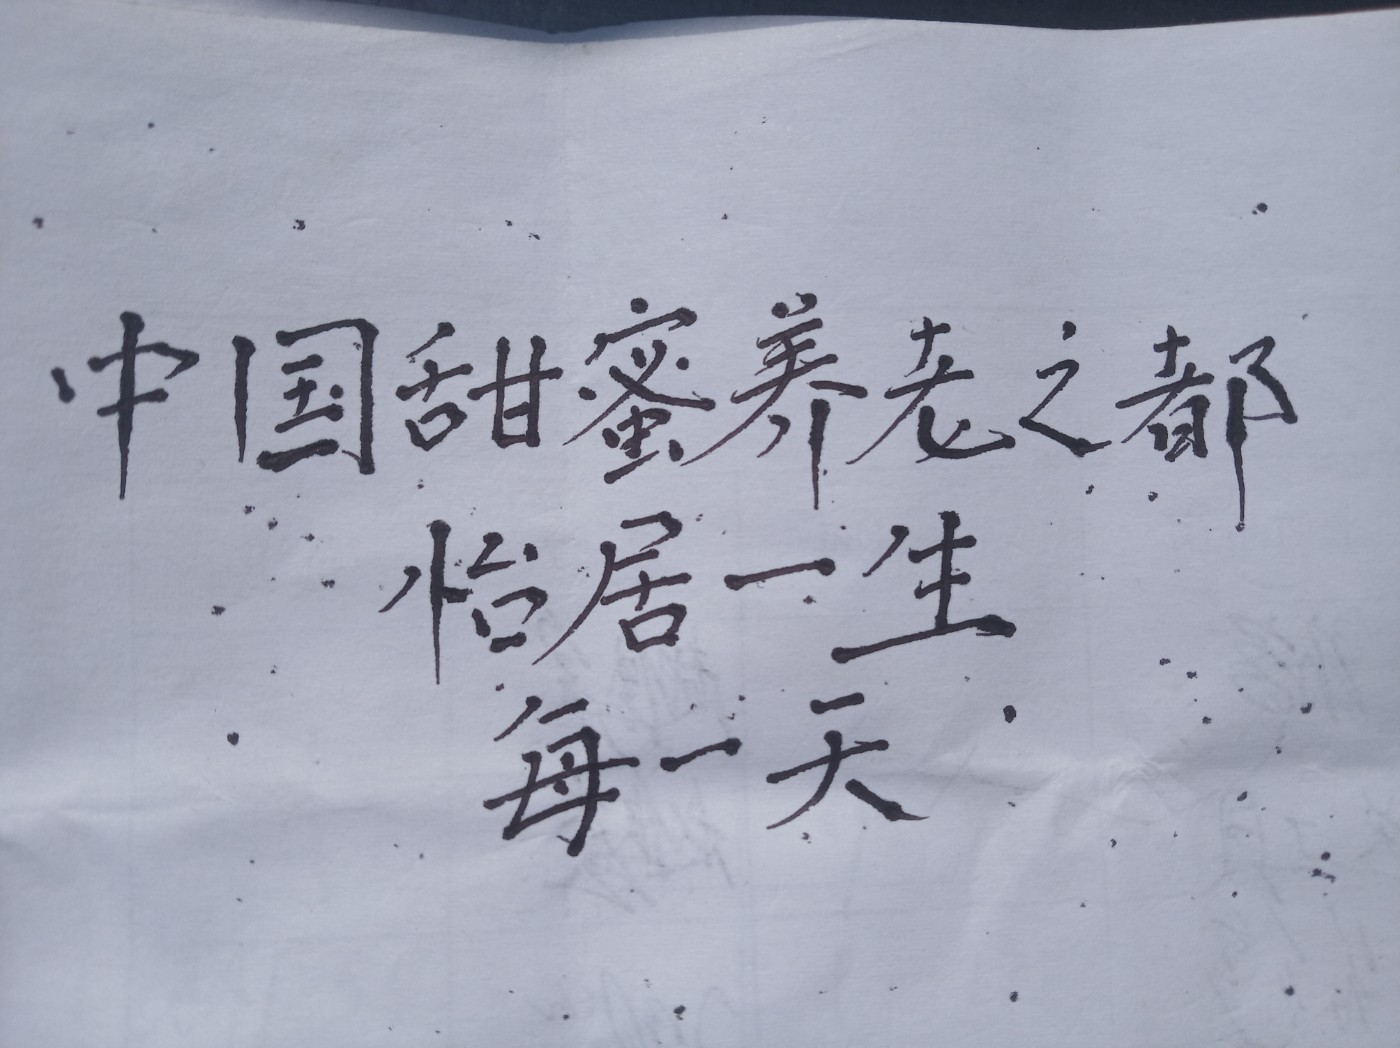 中国甜蜜养老之都
怡居一生
每一天